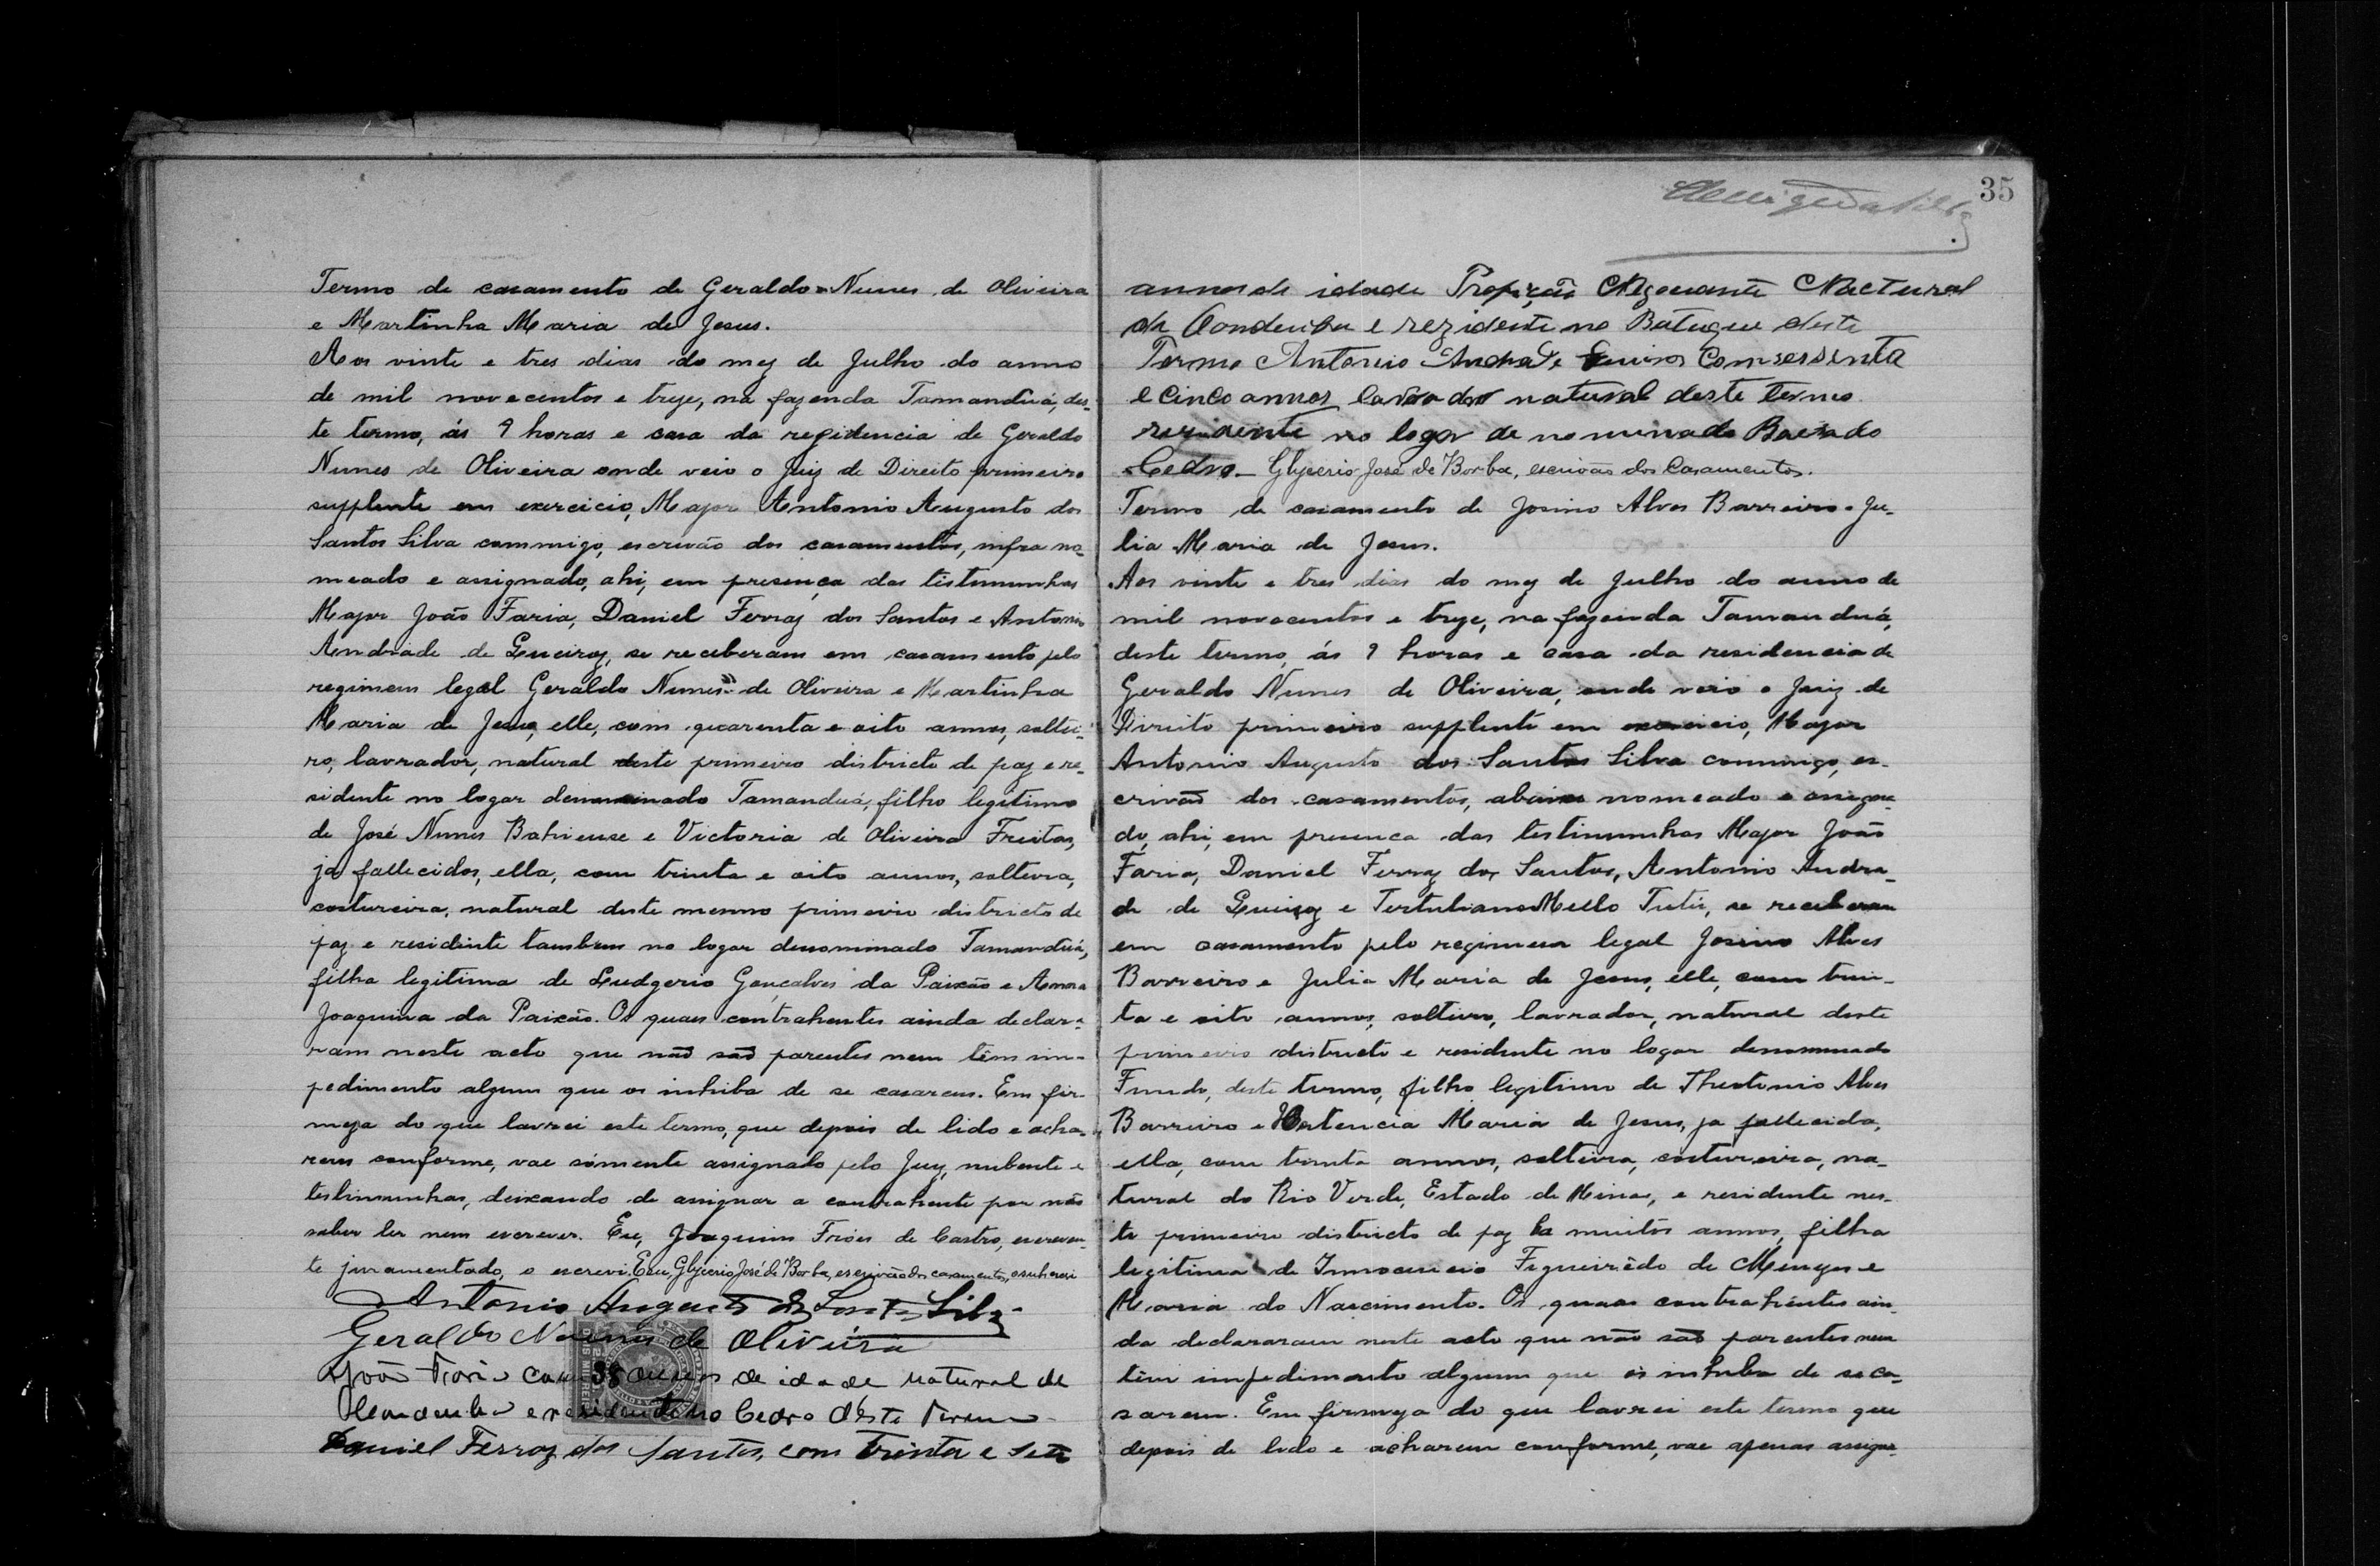 Termo de casamento de Geraldo Nunes de Oliveira
e Martinha Maria de Jesus.
Aos vinte e tres dias do mez de Julho do anno
de mil novecentos e treze, na fazenda Tamanduá, des-
te termo, ás 9 horas e casa da rezidencia de Geraldo
Nunes de Oliveira onde veio o Juiz de Direito primeiro
supplente em exercicio, Major Antonio Augusto dos
Santos Silva commigo, escrivão dos casamentos, infra no-
meado e assignado, ahi, em presença das tistemunhas
Major João Faria, Daniel Ferraz dos Santos e Antonio
Andrade de Queiroz, se receberam em casamento pelo
regimem legal Geraldo Nunes de Oliveira e Martinha
Maria de Jesus, elle, com quarenta e oito annos, soltei-
ro, lavrador, natural deste primeiro districto de paz e re-
sidente no logar denominado Tamanduá, filho legitimo
de José Nunes Bahiense e Victoria de Oliveira Freitas,
já fallecidos, ella, com trinta e oito annos, solteira,
costureira, natural deste mesmo primeiro districto de
paz e residente tambem no logar denominado Tamanduá,
filha legitima de Ludgerio Gonçalves da Paixão e
Joaquina da Paixão. Os quaes contrahentes ainda decla-
ram neste acto que não são parentes nem têm im-
pedimento algum que os inhiba de se casarem. Em fir-
meza do que lavrei este termo, que depois de lido e acha-
rem conforme, vae sómente assignado pelo Juiz, nubente e
testimunhas, deixando de assignar a contrahente por não
saber ler nem escrever. Eu, Joaquim Fróes de Castro, escreven-
te juramentado, o escrevi. E eu, Glycerio José de Borba, escrivão dos casamentos, o subscrevi
Antonio Augusto dos Santos Silva
Geraldo Nunis de Oliveira
João Faria com 38 annos de idade natural de
e residente no Cedro d'este termo
Daniel Ferraz dos Santos, com trinta e sete
35
annos de idade Negociante Nactural
de Condeuba e rezidente no Batuque deste
Termo Antonio Andrade com sessenta
e cinco annos lavrador natural deste termo
rezidente no logar de nominado
Cedro Glycerio José de Borba, escrivão dos Casamentos.
Termo de casamento de Josino Alves Barreiro e Ju-
lia Maria de Jesus.
Aos vinte e tres dias do mez de Julho do anno de
mil novecentos e treze, na fazenda Tamanduá,
deste termo, ás 9 horas e casa da residencia de
Geraldo Nunes de Oliveira, onde veio o Juiz de
Direito primeiro supplente em exercicio, Major
Antonio Augusto dos Santos Silva commigo, es-
crivão dos casamentos, abaixo nomeado e assigna-
do, ahi, em presença das testimunhas Major João
Faria, Daniel Ferraz dos Santos, Antonio Andra-
de de Queiroz e Tertuliano Mello Tutú, se receberam
em casamento pelo regimem legal Josino Alves
Barreiro e Julia Maria de Jesus, elle, com trin-
ta e oito annos, solteiro, lavrador, natural deste
primeiro districto e residente no logar denominado
Fundo, deste termo, filho legitimo de Theotonio Alves
Barreiro e Hortencia Maria de Jesus, já fallecida,
ella, com trinta annos, solteira, costureira, na-
tural do Rio Verde, Estado de Minas, e residente nes-
te primeiro districto de paz ha muitos annos, filha
legitima de Innocencio Figueirêdo de Menezes e
Maria do Nascimento. Os quaes contrahentes ain-
da declararam neste acto que não são parentes nem
têm impedimento algum que os inhiba de se ca-
sarem. Em firmeza do que lavrei este termo que
depois de lido e acharem conforme, vae apenas assigna-